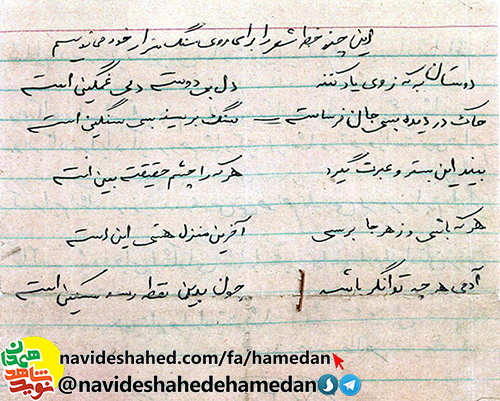 این چند خط شعر را برای روی سنگ مزار خود می نویسم
دوستان به که ز وی یاد کنند دل بی دوست دلی غمگین است
خاک در دیده بسی جان فرساست سنگ بر سینه بسی سنگین است
بیند این بستر و عبرت گیرد هر که را چشم حقیقت بین است
هر که باشی و ز هر جا برسی آخرین منزل هستی این است
آدمی هر چه توانگر باشد چون بدین نقطه رسد مسکین است
navideshahed.com/fa/hamedan
@navideshahedehamedan
نوید شاهد همدان